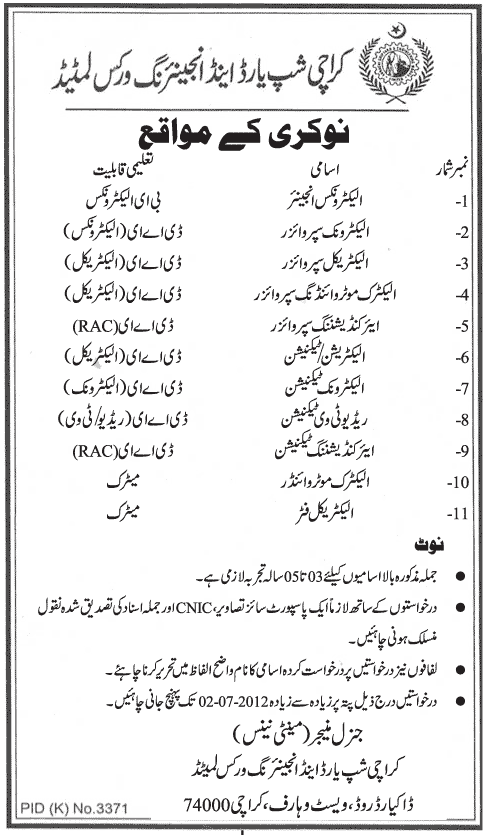 کراچی شپ یارڈ اینڈ انجینئرنگ ورکس لمیٹڈ
نوکری کے مواقع
نمبر شمار اسامی تعلیمی قابلیت
1- الیکٹرونکس انجینئر بی ای الیکٹرونکس
2- الیکٹرونک سپروائزر ڈی اے ای (الیکٹرونکس)
3- الیکٹریکل سپروائزر ڈی اے ای (الیکٹریکل)
4- الیکٹرک موٹر وائنڈنگ سپروائزر ڈی اے ای (الیکٹریکل)
5- ایئر کنڈیشننگ سپروائزر ڈی اے ای (RAC)
6- الیکٹریشن/ٹیکنیشن ڈی اے ای (الیکٹریکل)
7- الیکٹرونک ٹیکنیشن ڈی اے ای (الیکٹرونک)
8- ریڈیو ٹی وی ٹیکنیشن ڈی اے ای (ریڈیو/ٹی وی)
9- ایئر کنڈیشننگ ٹیکنیشن ڈی اے ای (RAC)
10- الیکٹرک موٹر وائنڈر میٹرک
11- الیکٹریکل فٹر میٹرک
نوٹ
● جملہ مذکورہ بالا اسامیوں کیلئے 03 تا 05 سالہ تجربہ لازمی ہے۔
● درخواستوں کے ساتھ لازماً ایک پاسپورٹ سائز تصاویر، CNIC اور جملہ اسناد کی تصدیق شدہ نقول
منسلک ہونی چاہئیں۔
● لفافوں نیز درخواستیں پر درخواست کردہ اسامی کا نام واضح الفاظ میں تحریر کرنا چاہئے۔
● درخواستیں درج ذیل پتہ پر زیادہ سے زیادہ 02-07-2012 تک پہنچ جانی چاہئیں۔
جنرل منیجر (مینٹی نینس)
کراچی شپ یارڈ اینڈ انجینئرنگ ورکس لمیٹڈ
ڈاکیارڈ روڈ، ویسٹ وہارف، کراچی 74000
PID (K) No.3371